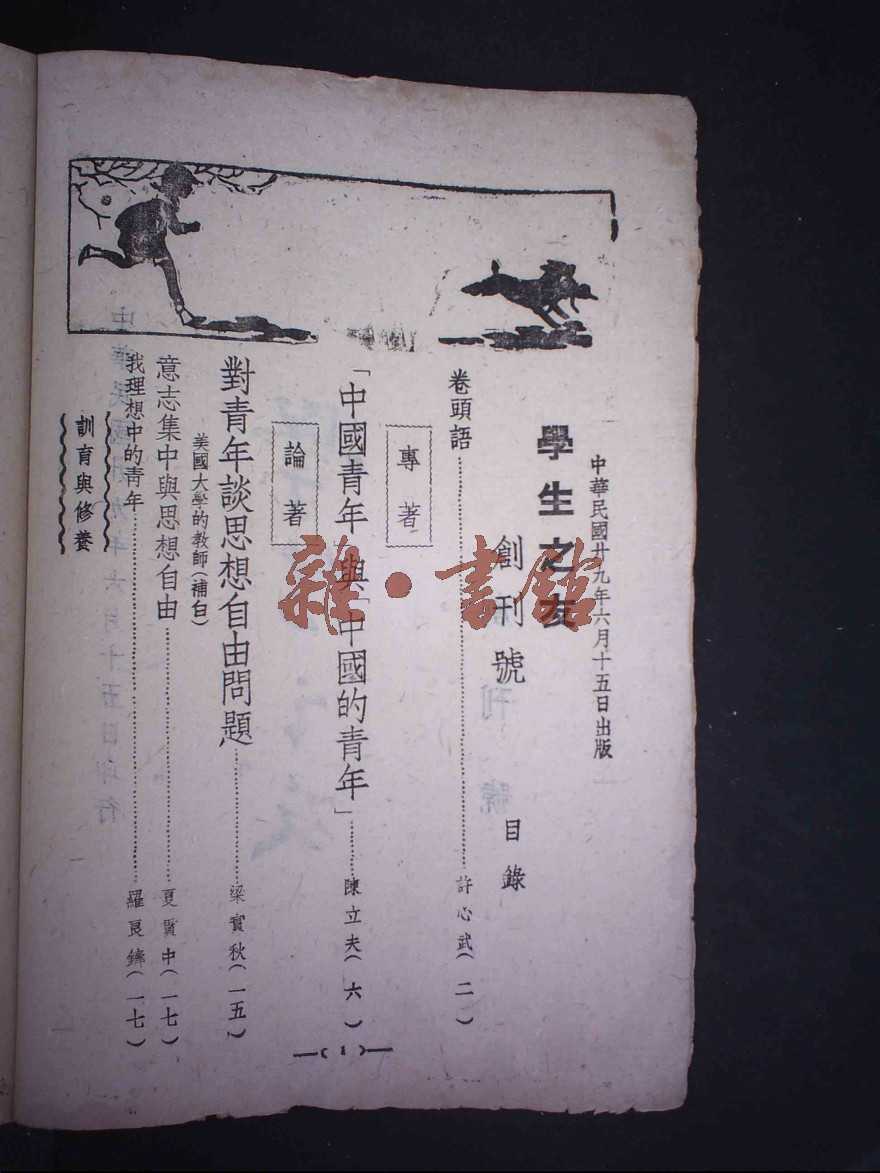 中華民國廿九年六月十五日出版
學生之友
創刊號 目錄
卷頭語……許心武(二)
專著
「中國青年」與「中國的青年」……陳立夫(六)
論著
對青年談思想自由問題……梁實秋(一五)
美國大學的教師(補白)
意志集中與思想自由……夏貫中(一七)
我理想中的青年……羅良鑄(一七)
訓育與修養
—(1)—
雜·書館
中華民國廿九年六月十五日印行
刊號